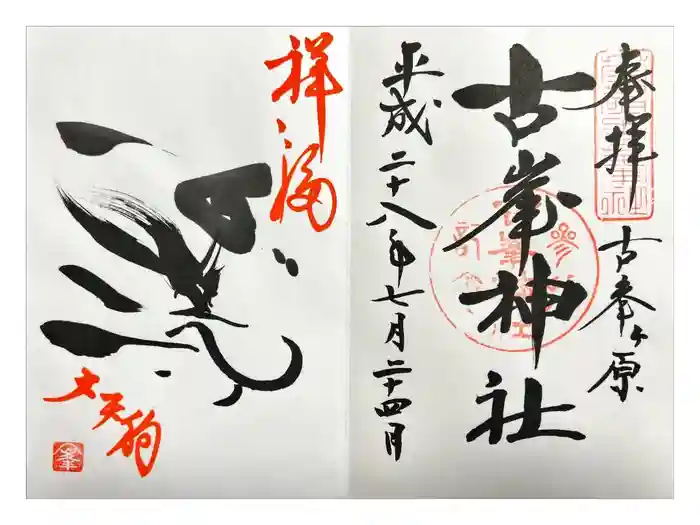 奉拝
古峯ヶ原
古峯神社
平成二十八年七月二十四月
祥福
大天狗
峯